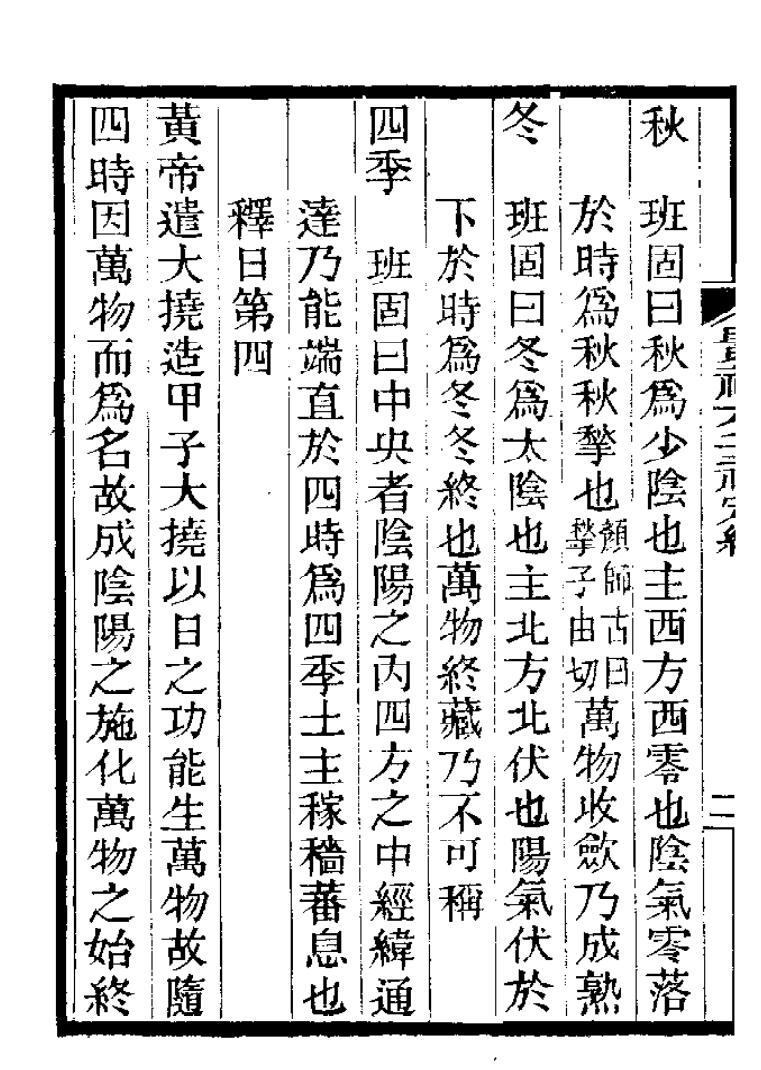 秋　班固曰秋爲少陰也主西方西零也陰氣零落
於時爲秋秋揫也顏師古曰揫子由切萬物收斂乃成熟
冬　班固曰冬爲太陰也主北方北伏也陽氣伏於
下於時爲冬冬終也萬物終藏乃不可稱
四季　班固曰中央者陰陽之內四方之中經緯通
達乃能端直於四時爲四季土主稼穡蕃息也
釋日第四
黃帝遣大撓造甲子大撓以日之功能生萬物故隨
四時因萬物而爲名故成陰陽之施化萬物之始終